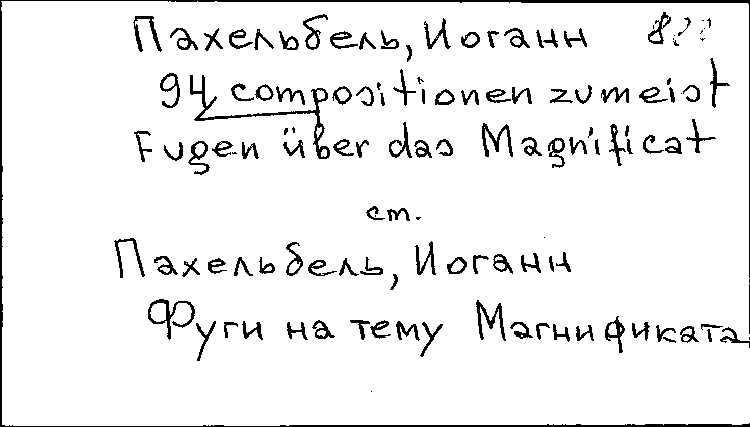 Пахельбель, Иоганн
94 compositionen zumeist
Fugen über das Magnificat
см.
Пахельбель, Иоганн
Фуги на тему Магнификата